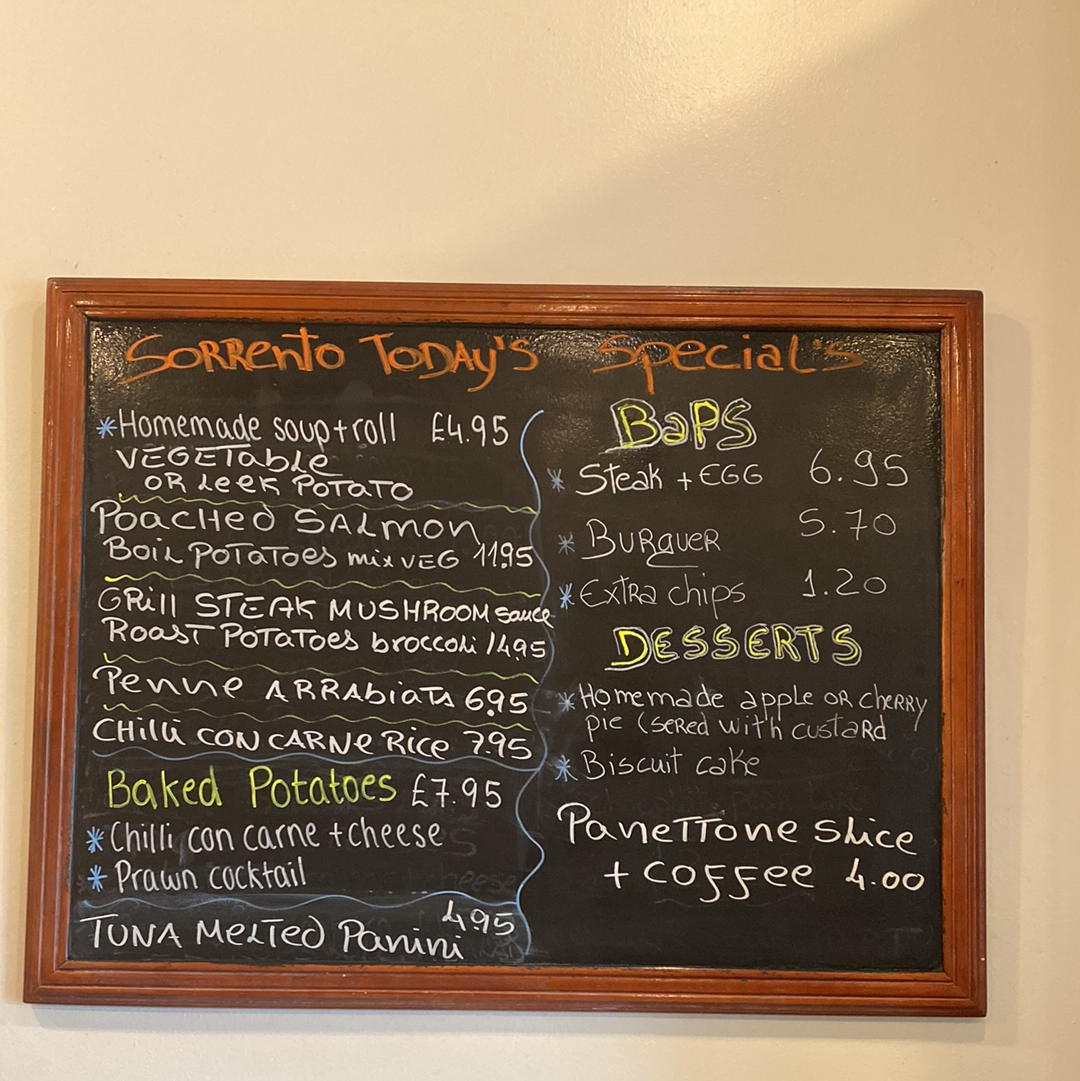 Sorrento Today's Special's
*Homemade soup+roll £4.95
VEGETable
OR Leek Potato
Poached Salmon
Boil Potatoes mix veg 11.95
Grill STEAK MUSHROOM sauce
Roast Potatoes broccoli 14.95
Penne ARRAbiata 6.95
Chilli con carne Rice 7.95
Baked Potatoes £7.95
*Chilli con carne + cheese
*Prawn cocktail
4.95
Tuna Melted Panini
BaPS
*Steak + EGG 6.95
*Burquer 5.70
*Extra chips 1.20
DESSERTS
*Homemade apple or cherry
pie (sered with custard
*Biscuit cake
Panettone slice
+ coffee 4.00